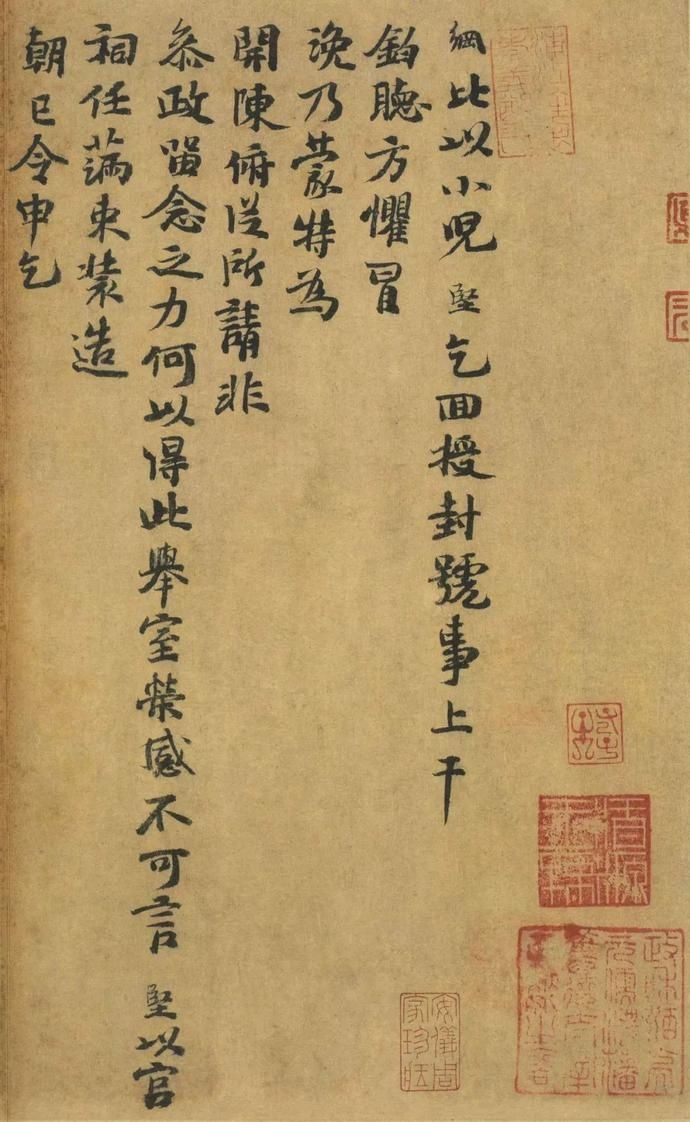 綱比以小兒堅乞回授封號事上干
鈞聽方懼冒
浼乃蒙特為
開陳俯從所請非
叅政留念之力何以得此舉室榮感不可言堅以官
祠任滿束裝造
朝已令申乞
安儀周家珍藏